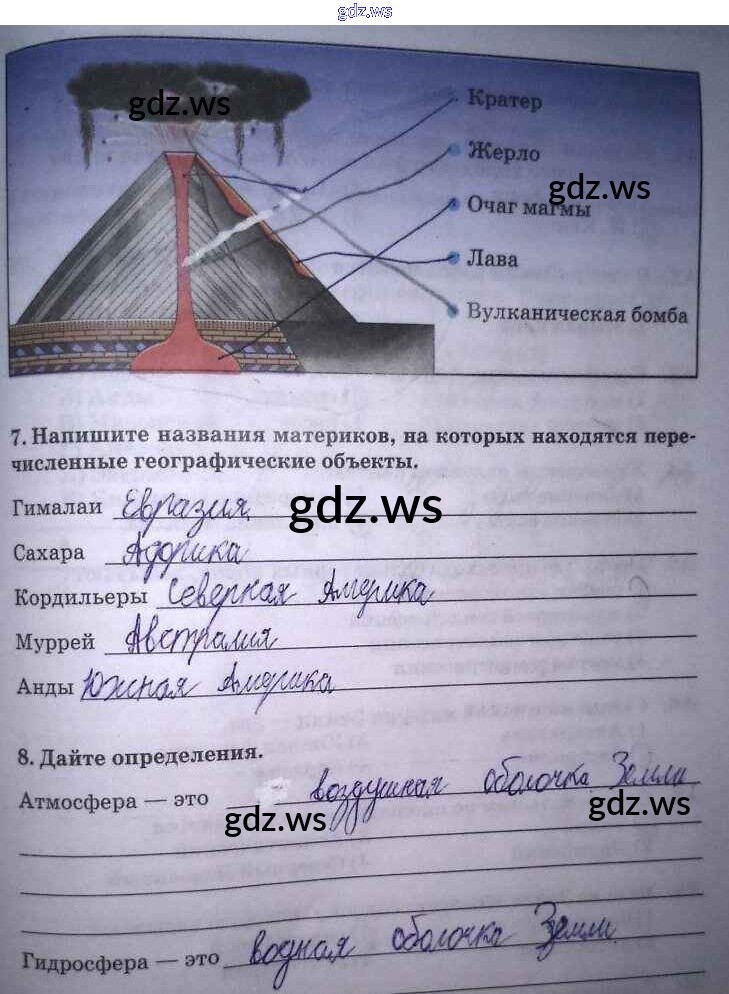 gdz.ws
gdz.ws
Кратер
Жерло
gdz.ws
Очаг магмы
Лава
Вулканическая бомба
7. Напишите названия материков, на которых находятся пере-
численные географические объекты.
Гималаи Евразия
gdz.ws
Сахара Африка
Кордильеры Северная Америка
Муррей Австралия
Анды Южная Америка
8. Дайте определения.
Атмосфера — это воздушная оболочка Земли
gdz.ws gdz.ws
Гидросфера — это водная оболочка Земли.